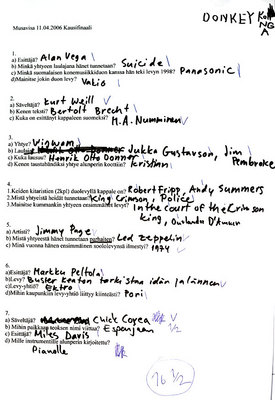 DONKEY KoNGA
Musavisa 11.04.2006 Kausifinaali
1.
a) Esittäjä? Alan Vega
b) Minkä yhtyeen laulajana hänet tunnetaan? Suicide
c) Minkä suomalaisen konemusiikkiduon kanssa hän teki levyn 1998? Panasonic
d) Mainitse jokin duon levy? Vakio
2.
a) Säveltäjä? Kurt Weill
b) Kenen teksti? Bertolt Brecht
c) Kuka on esittänyt kappaleen suomeksi? M.A. Numminen
3.
a) Yhtye? Wigwam
b) Laulajat Jukka Gustavson, Jim Pembroke
c) Kuka lausui? Henrik Otto Donner
d) Kenen taustabändiksi yhtye alunperin koottiin? Kristian
4.
1. Keiden kitaristien (2kpl) duolevyllä kappale on? Robert Fripp, Andy Summers
2. Mistä yhtyeistä heidät tunnetaan? King Crimson, Police
3. Mainitse kummankin yhtyeen ensimmäinen levy? In the Court of the Crimson King, Outlandos D'Amour
5.
a) Artisti? Jimmy Page
b) Mistä yhtyeestä hänet tunnetaan parhaiten? Led Zeppelin
c) Minä vuonna hänen ensimmäinen soololevynsä ilmestyi? 1974
6.
a) Esittäjä? Markku Peltola
b) Levy? Buster Keaton tarkistaa idän ja lännen
c) Levy-yhtiö? Ektro
d) Mihin kaupunkiin levy-yhtiö liittyy kiinteästi? Pori
7.
a) Säveltäjä? Chick Corea
b) Mihin paikkaan teoksen nimi viittaa? Espanjaan 1/2
c) Esittäjä? Miles Davis
d) Mille instrumentille alunperin kirjoitettu?
Pianolle
16 1/2